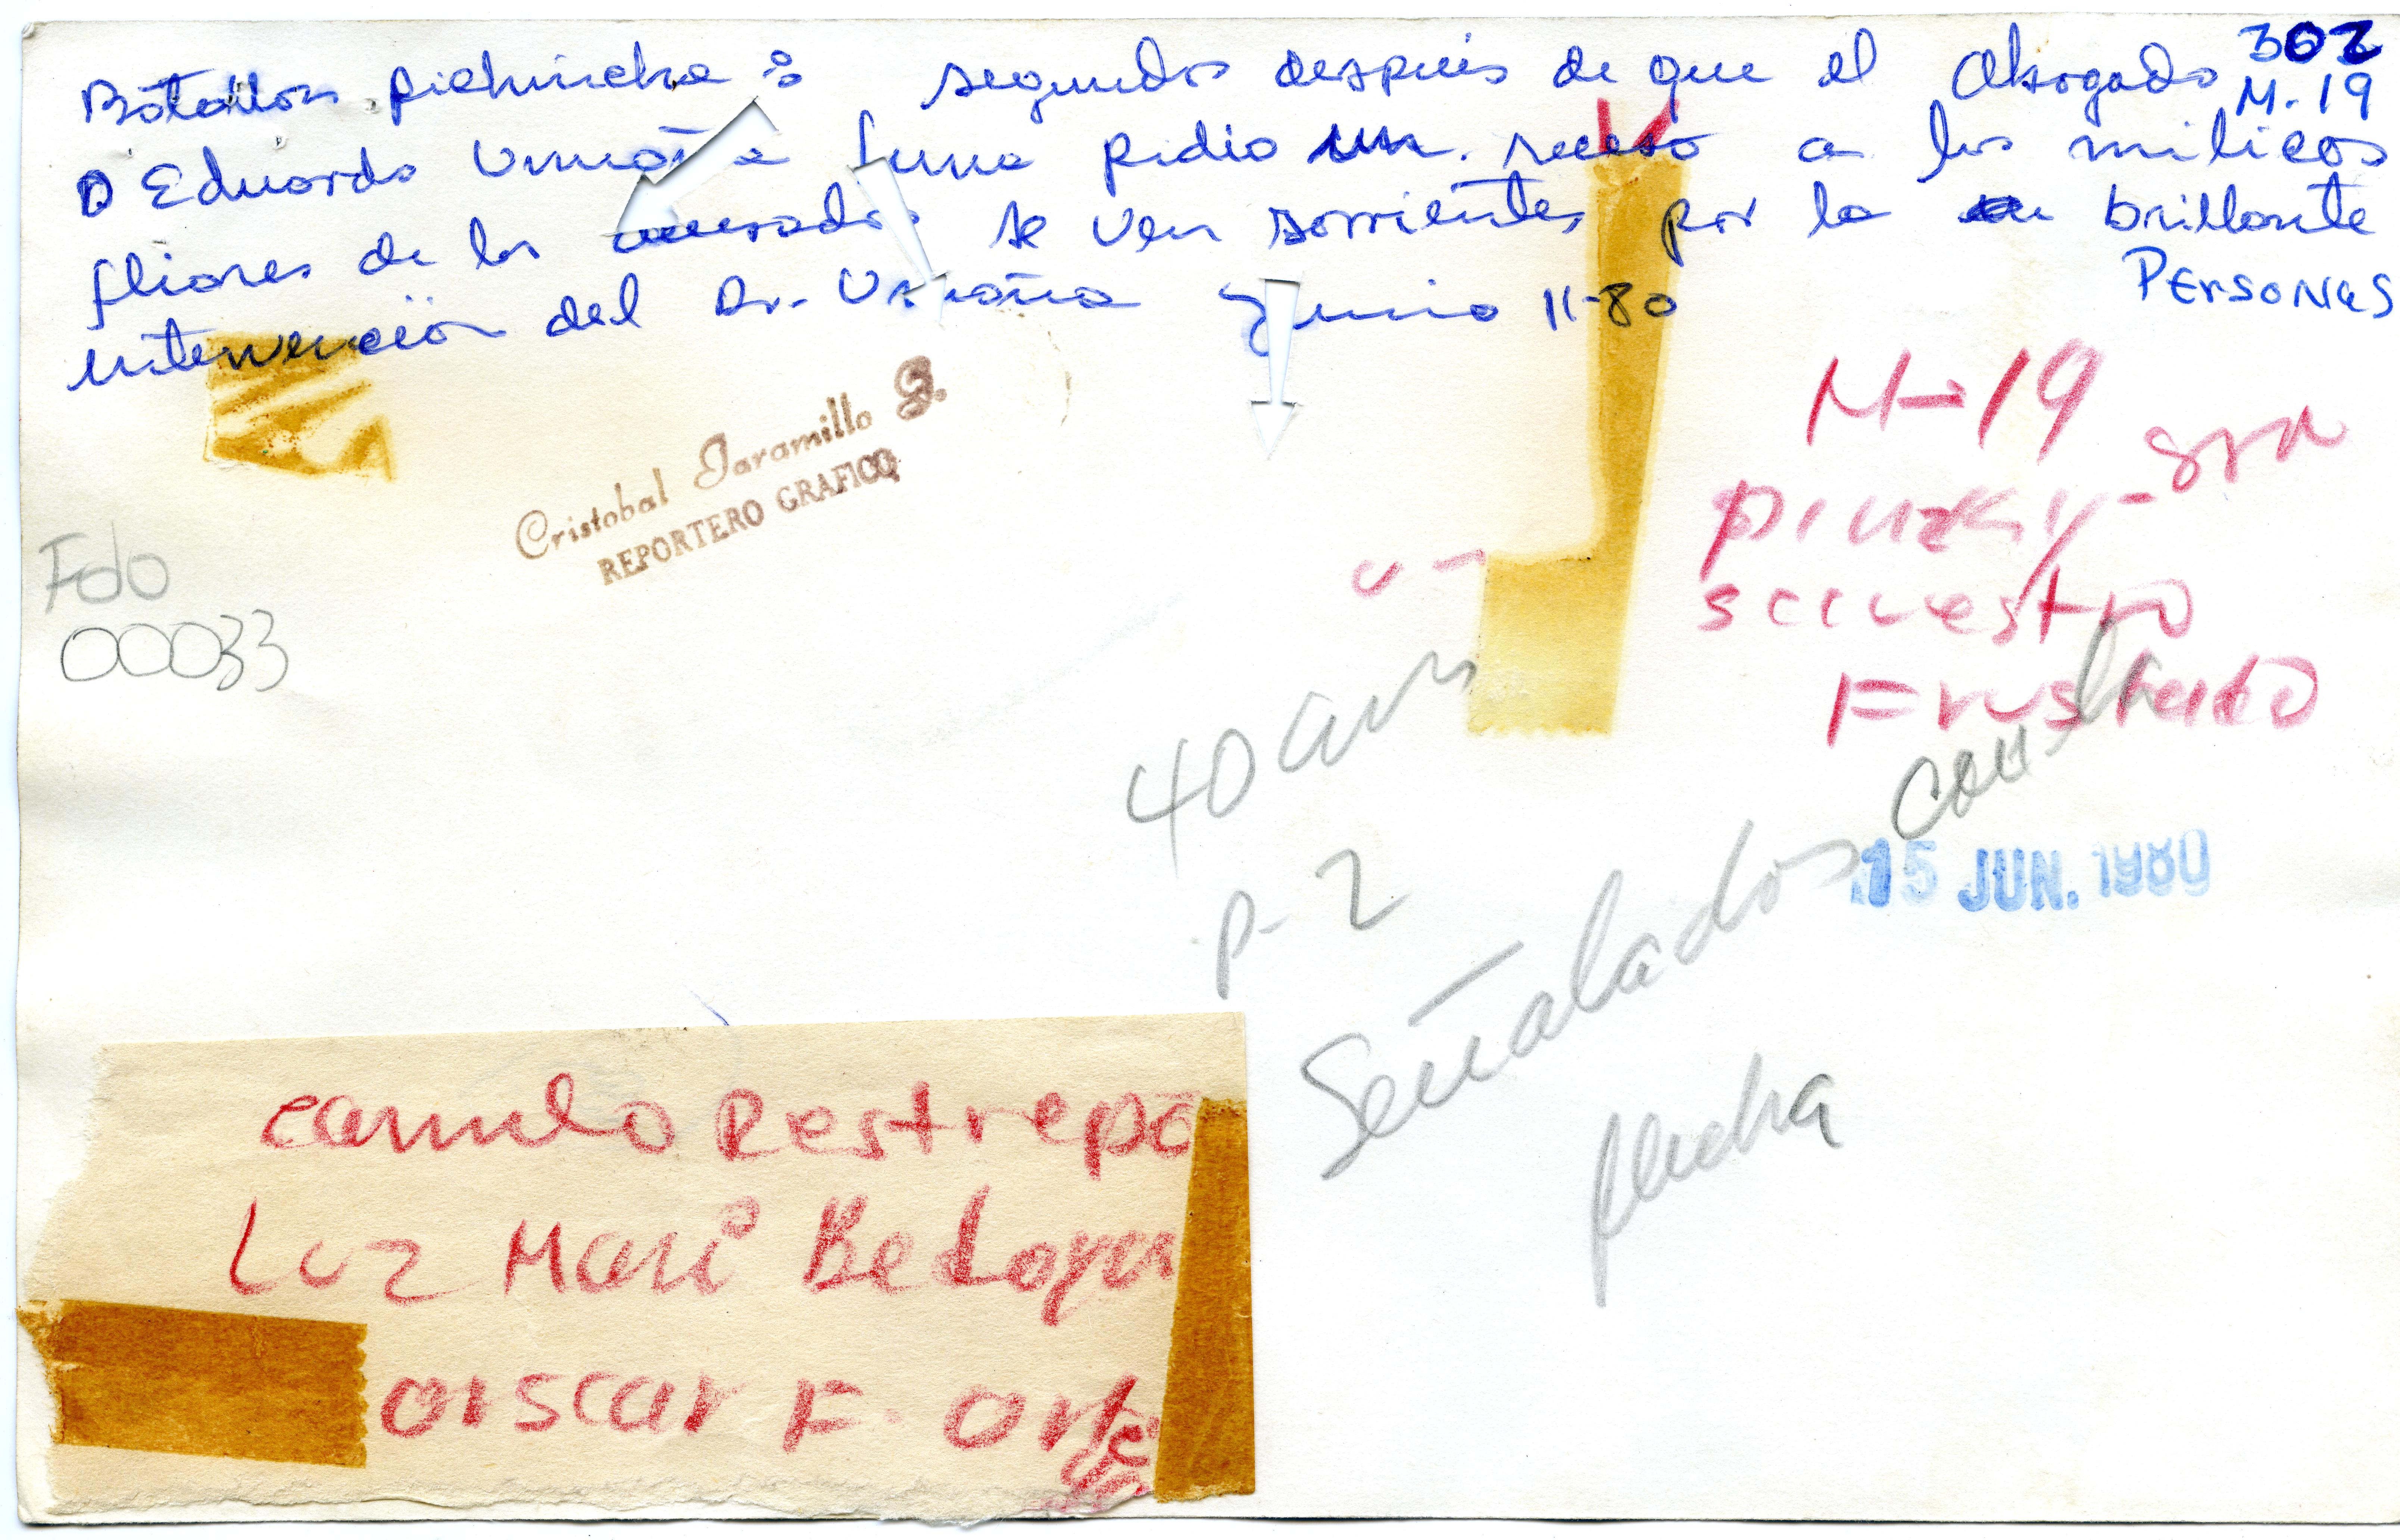 Batallon pichincha : segundos despues de que el Abogado
D Eduardo Umaña Luna pidio un receso a los milicos
fliares de los acusados se ven sorrientes por la brillante
intervención del Dr. Umaña Junio 11-80
302
M-19
PERSONAS
Cristobal Jaramillo G.
REPORTERO GRAFICO
Fdo
00033
M-19
srn
secuestro
Frustado
40 cms
p-2
Señalados con la
flecha
15 JUN. 1980
camilo Restrepo
Luz Mari Bedoya
oiscar F. Orte